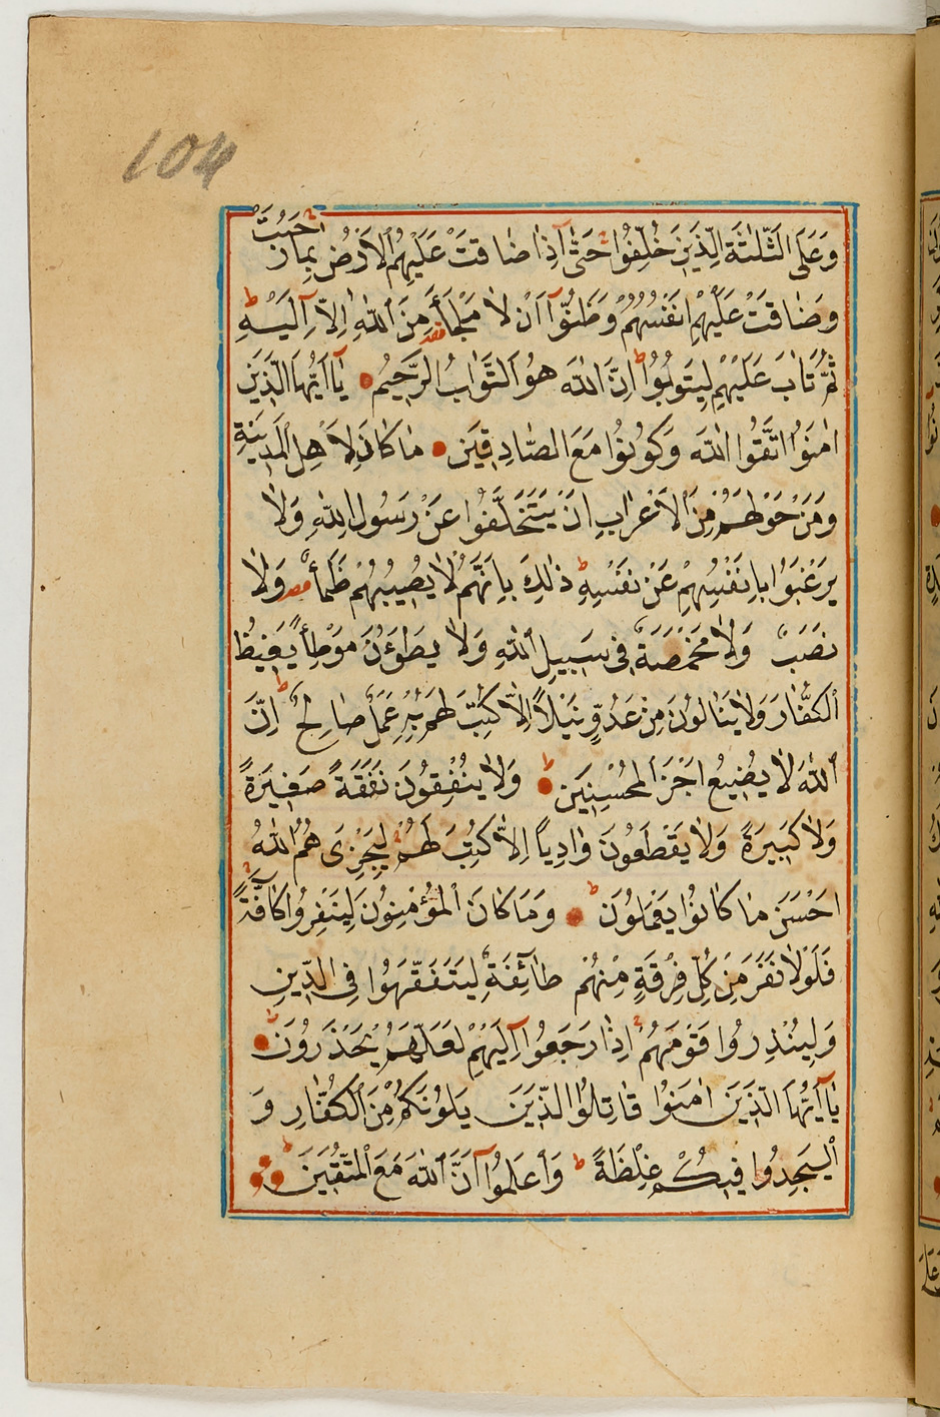 104
وَعَلَى الثَّلٰثَةِ الَّذِينَ خُلِّفُوا حَتّٰى اِذَا ضَاقَتْ عَلَيْهِمُ الْاَرْضُ بِمَا رَحُبَتْ
وَضَاقَتْ عَلَيْهِمْ اَنْفُسُهُمْ وَظَنُّوا اَنْ لَا مَلْجَأَ مِنَ اللّٰهِ اِلَّا اِلَيْهِ ط
ثُمَّ تَابَ عَلَيْهِمْ لِيَتُوبُوا ط اِنَّ اللّٰهَ هُوَ التَّوَّابُ الرَّحِيمُ يَا اَيُّهَا الَّذِينَ
اٰمَنُوا اتَّقُوا اللّٰهَ وَكُونُوا مَعَ الصَّادِقِينَ مَا كَانَ لِاَهْلِ الْمَدِينَةِ
وَمَنْ حَوْلَهُمْ مِنَ الْاَعْرَابِ اَنْ يَتَخَلَّفُوا عَنْ رَسُولِ اللّٰهِ وَلَا
يَرْغَبُوا بِاَنْفُسِهِمْ عَنْ نَفْسِهِ ط ذٰلِكَ بِاَنَّهُمْ لَا يُصِيبُهُمْ ظَمَأٌ وَلَا
نَصَبٌ وَلَا مَخْمَصَةٌ فِي سَبِيلِ اللّٰهِ وَلَا يَطَؤُنَ مَوْطِئًا يَغِيظُ
الْكُفَّارَ وَلَا يَنَالُونَ مِنْ عَدُوٍّ نَيْلًا اِلَّا كُتِبَ لَهُمْ بِهِ عَمَلٌ صَالِحٌ ط اِنَّ
اللّٰهَ لَا يُضِيعُ اَجْرَ الْمُحْسِنِينَ ط وَلَا يُنْفِقُونَ نَفَقَةً صَغِيرَةً
وَلَا كَبِيرَةً وَلَا يَقْطَعُونَ وَادِيًا اِلَّا كُتِبَ لَهُمْ لِيَجْزِىَ هُمُ اللّٰهُ
اَحْسَنَ مَا كَانُوا يَعْمَلُونَ ط وَمَا كَانَ الْمُؤْمِنُونَ لِيَنْفِرُوا كَافَّةً
فَلَوْلَا نَفَرَ مِنْ كُلِّ فِرْقَةٍ مِنْهُمْ طَائِفَةٌ لِيَتَفَقَّهُوا فِي الدِّينِ
وَلِيُنْذِرُوا قَوْمَهُمْ اِذَا رَجَعُوا اِلَيْهِمْ لَعَلَّهُمْ يَحْذَرُونَ ط
يَا اَيُّهَا الَّذِينَ اٰمَنُوا قَاتِلُوا الَّذِينَ يَلُونَكُمْ مِنَ الْكُفَّارِ وَ
الْيَجِدُوا فِيكُمْ غِلْظَةً ط وَاعْلَمُوا اَنَّ اللّٰهَ مَعَ الْمُتَّقِينَ ط